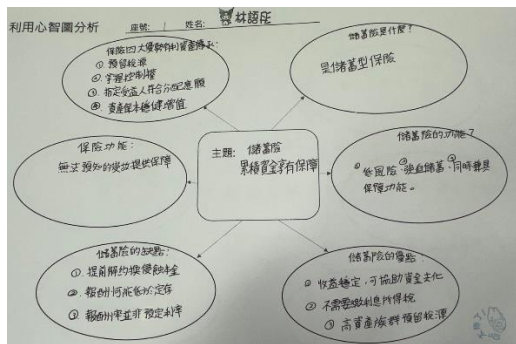 利用心智圖分析
座號: / 姓名: 林語彤
保險四大優勢有利資產傳承:
① 預留稅源
② 掌握控制權
③ 指定受益人符合分配意願
④ 資產保本穩健增值
儲蓄險是什麼?
是儲蓄型保險
保險功能:
無法預知的變故提供保障
主題: 儲蓄險
累積資金享有保障
儲蓄險的功能?
① 低風險 ② 強迫儲蓄 ③ 同時兼具
保障功能。
儲蓄險的缺點:
① 提前解約損侵蝕本金
② 報酬可能低於定存
③ 報酬率並非預定利率
儲蓄險的優點:
① 收益穩定,可協助資金去化
② 不需要繳利息所得稅
③ 高資產族群預留稅源